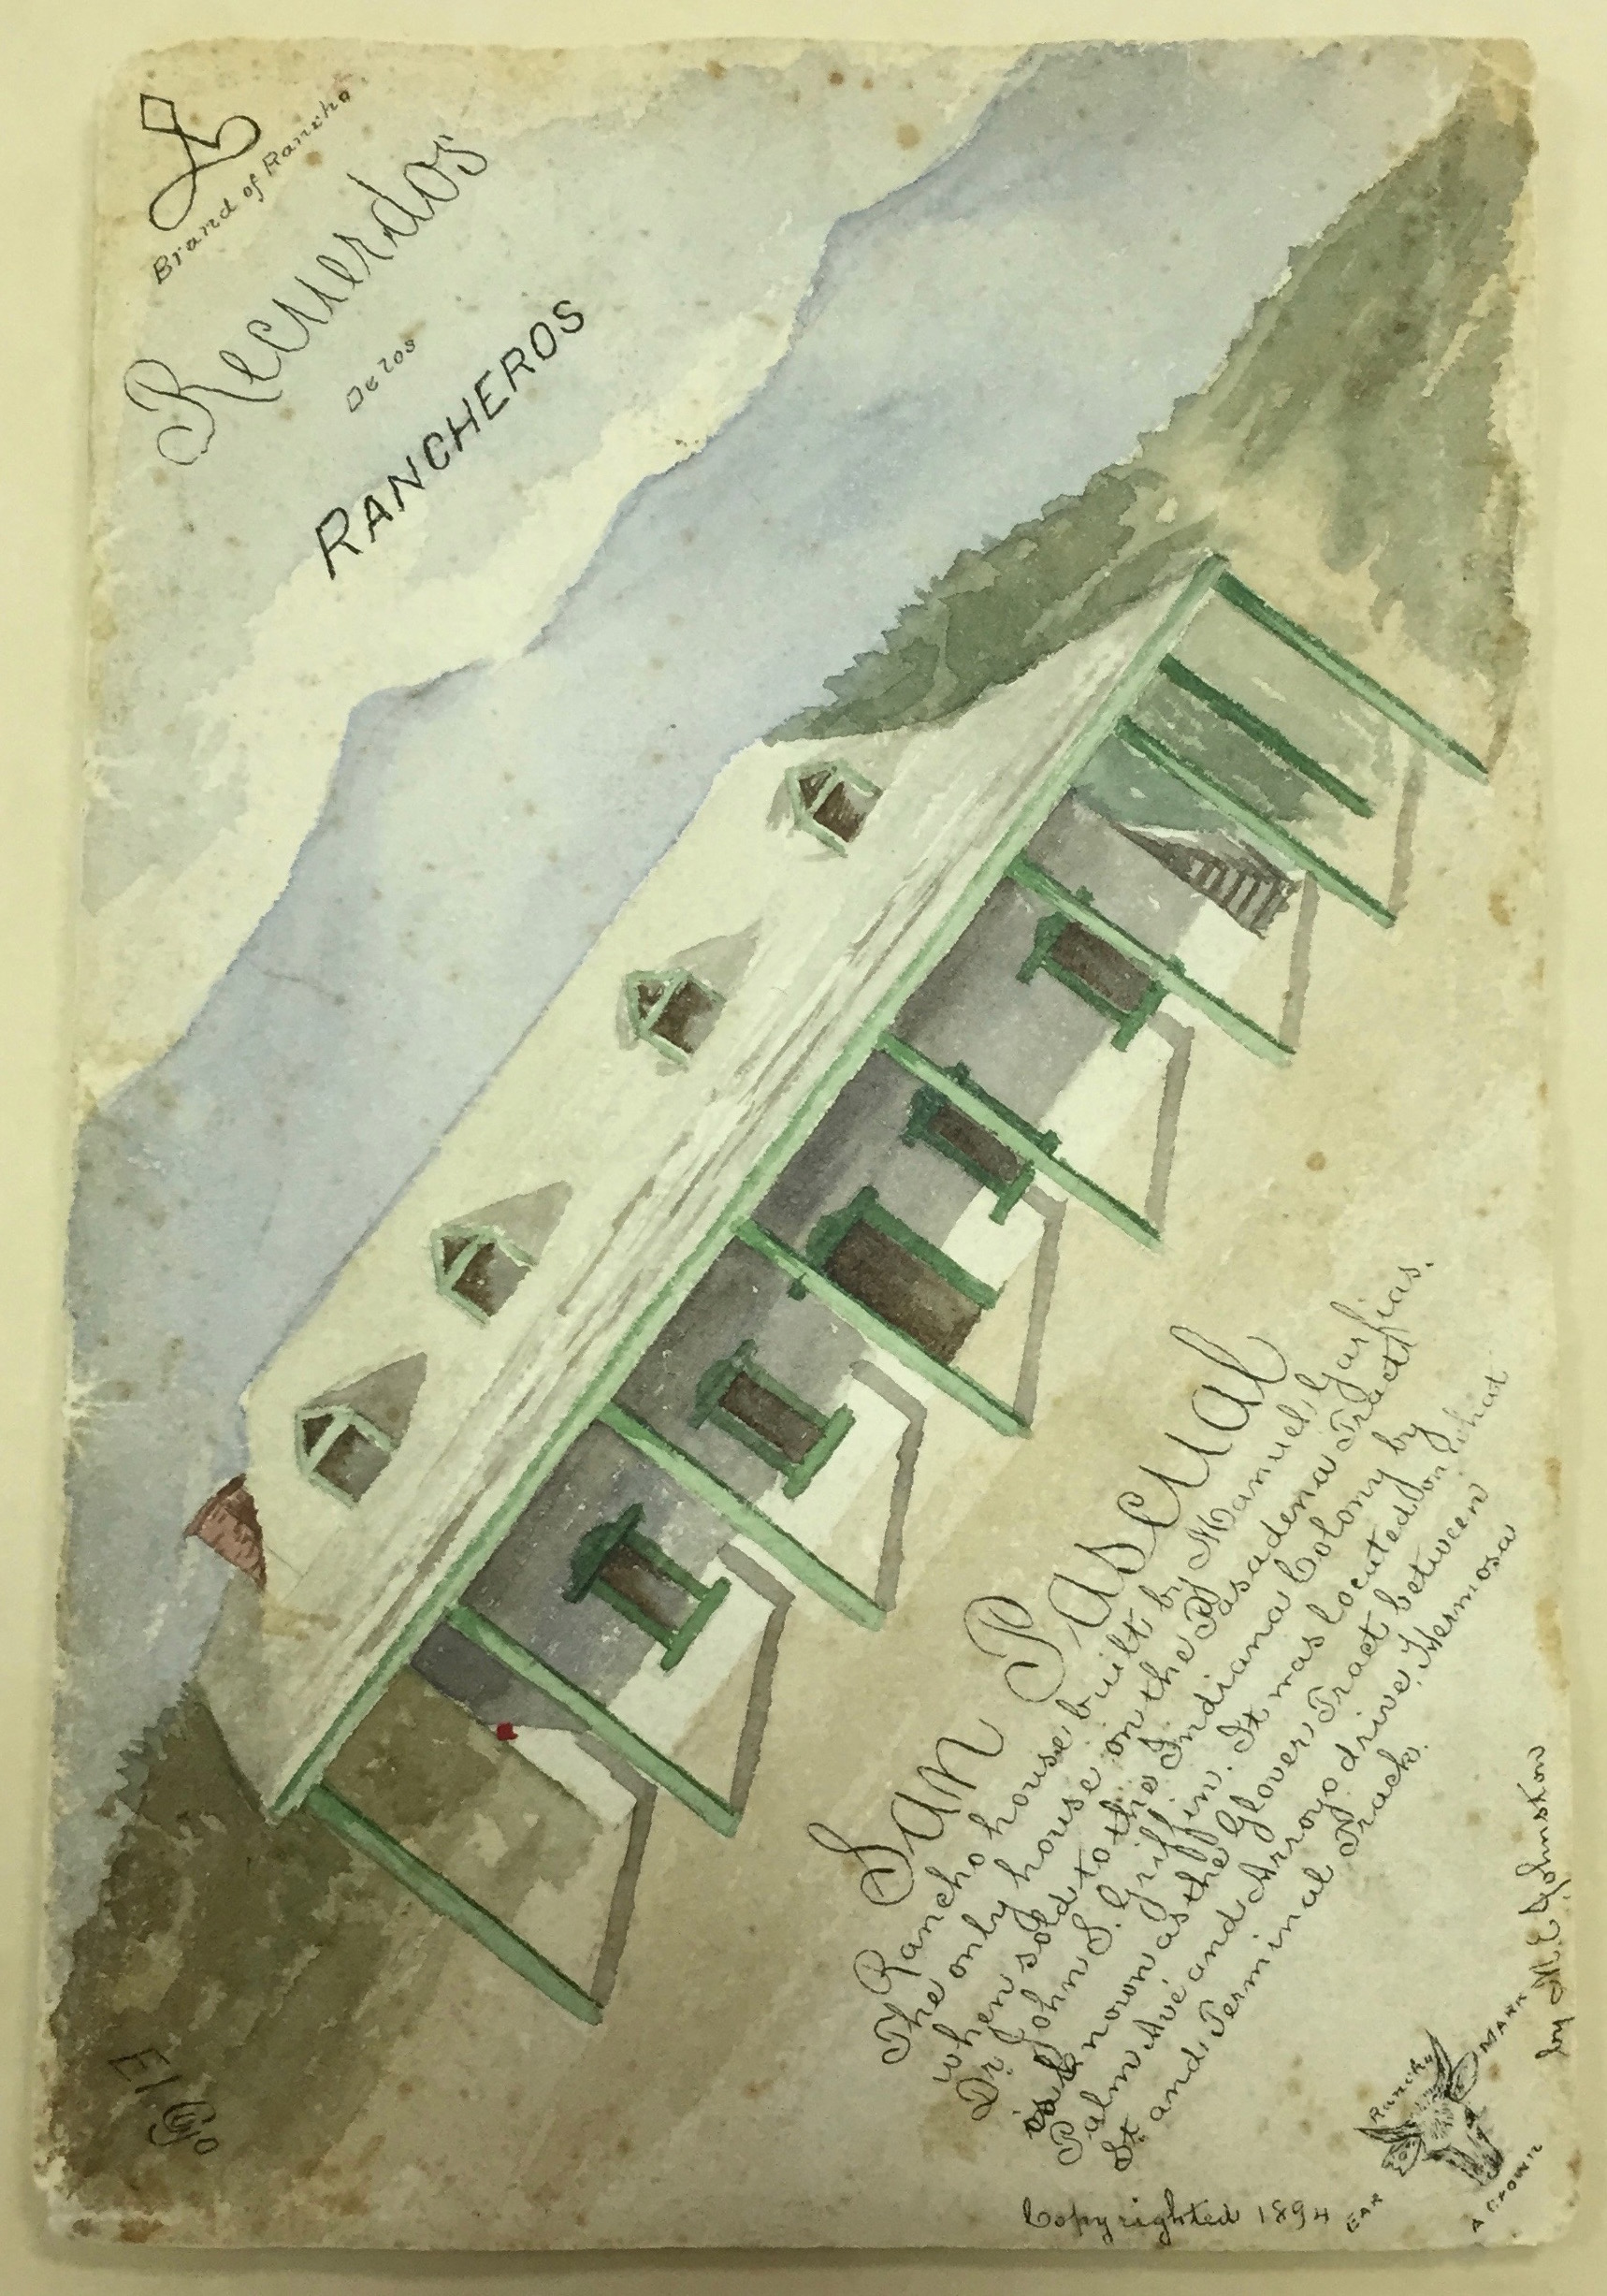 Brand of Rancho
Recuerdos
De los
RANCHEROS
San Pascual
Rancho house built by Manuel Garfias.
The only house on the Pasadena Tract
when sold to the Indiana Colony by
Dr John S. Griffin. It was located on what
is known as the Glover Tract between
Palm Ave and Arroyo drive, Hermosa
St and Terminal Track.
Copyrighted 1894
Rancho
EAR MARK
A CROWN
by M. E. Johnston